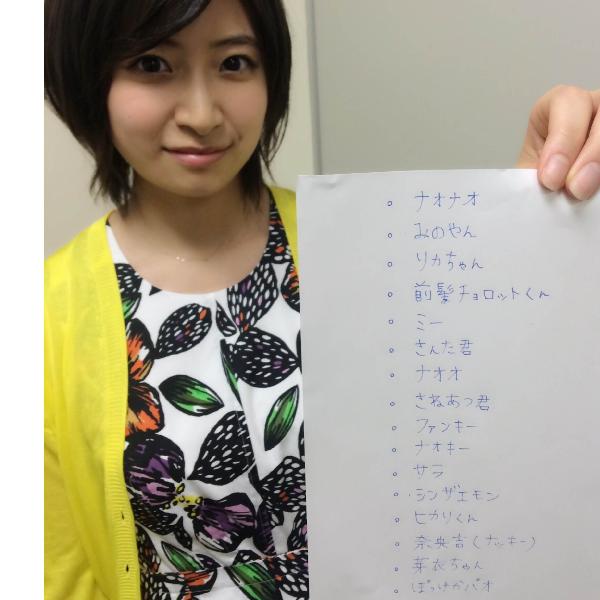 。ナオナオ
。みのやん
。リカちゃん
。前髪チョロットくん
。ミー
。さんた君
。ナオオ
。さねあつ君
。ファンキー
。ナオキー
。サラ
。シンザエモン
。ヒカリくん
。奈央吉(ナッキー)
。芽衣ちゃん
。ぽっけかパオ